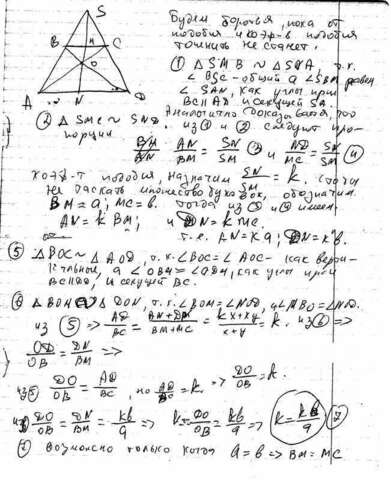 S
B M C
O
A N D
Будем бороться, пока от
подобия и коэф-в подобия
тошнить не станет.
① △SMB ~ △SNA, т.к.
∠BSC - общий а ∠SBM равен
∠SAN, как углы при
BC∥AD и секущей SA.
② △SMC ~ SND. Аналогично доказывается, что
из ① и ② следует про-
порции
BM/AN AN/BM = SN/SM ③ и ND/MC = SN/SM ④
коэф-т подобия, назначим SN/SM = k, чтобы
не таскать множество букв. Ок, обозначим
BM = a; MC = b. тогда из ③ и ④ имеем
AN = k BM; и DN = k MC.
т.е. AN = k a; DN = k b.
⑤ △BOC ~ △AOD, т.к. ∠BOC = ∠AOC - как верти-
кальные, а ∠OBM = ∠ADM, как углы при
BC∥AD, и секущей BC.
⑥ △BOM ~ △DON, т.к. ∠BOM = ∠NOD, и ∠MBO = ∠NDO.
из ⑤ => AD/BC = AN+DN/BM+MC = kx+ky/x+y = k. из ⑥ =>
OD/OB = DN/BM =>
из ⑤ DO/OB = AD/BC, но AD/BC = k. => DO/OB = k.
из DO/OB = DN/BM = kb/a => k = DO/OB = kb/a => k = kb/a ⑦
⑦ возможно только когда a = b => BM = MC